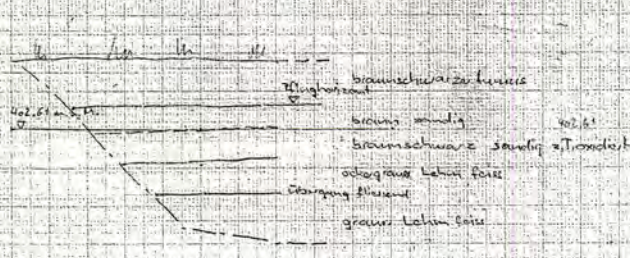 braunschwarzer Humus
Pflughorizont
402.61 m ü. M.
braun sandig
402.61
braunschwarz sandig z.T. oxidiert
ockergrau Lehm feiss
Übergang fliessend
grauer Lehm feiss